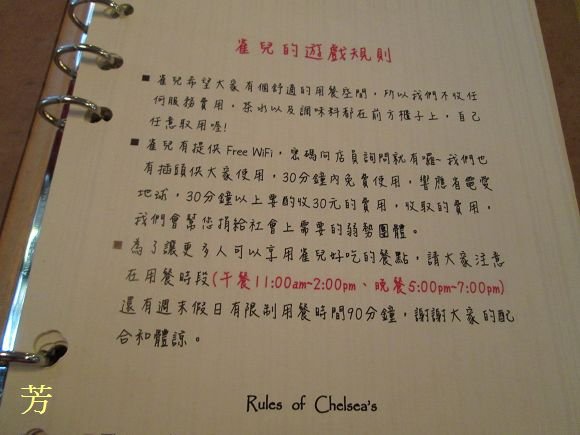 雀兒的遊戲規則
■ 雀兒希望大家有個舒適的用餐空間，所以我們不收任
何服務費用，茶水以及調味料都在前方櫃子上，自己
任意取用喔!
■ 雀兒有提供 Free WiFi，密碼向店員詢問就有囉~ 我們也
有插頭供大家使用，30分鐘內免費使用，響應省電愛
地球，30分鐘以上要酌收30元的費用，收取的費用，
我們會幫您捐給社會上需要的弱勢團體。
■ 為了讓更多人可以享用雀兒好吃的餐點，請大家注意
在用餐時段(午餐11:00am~2:00pm、晚餐5:00pm~7:00pm)
還有週末假日有限制用餐時間90分鐘，謝謝大家的配
合和體諒。
Rules of Chelsea's
芳